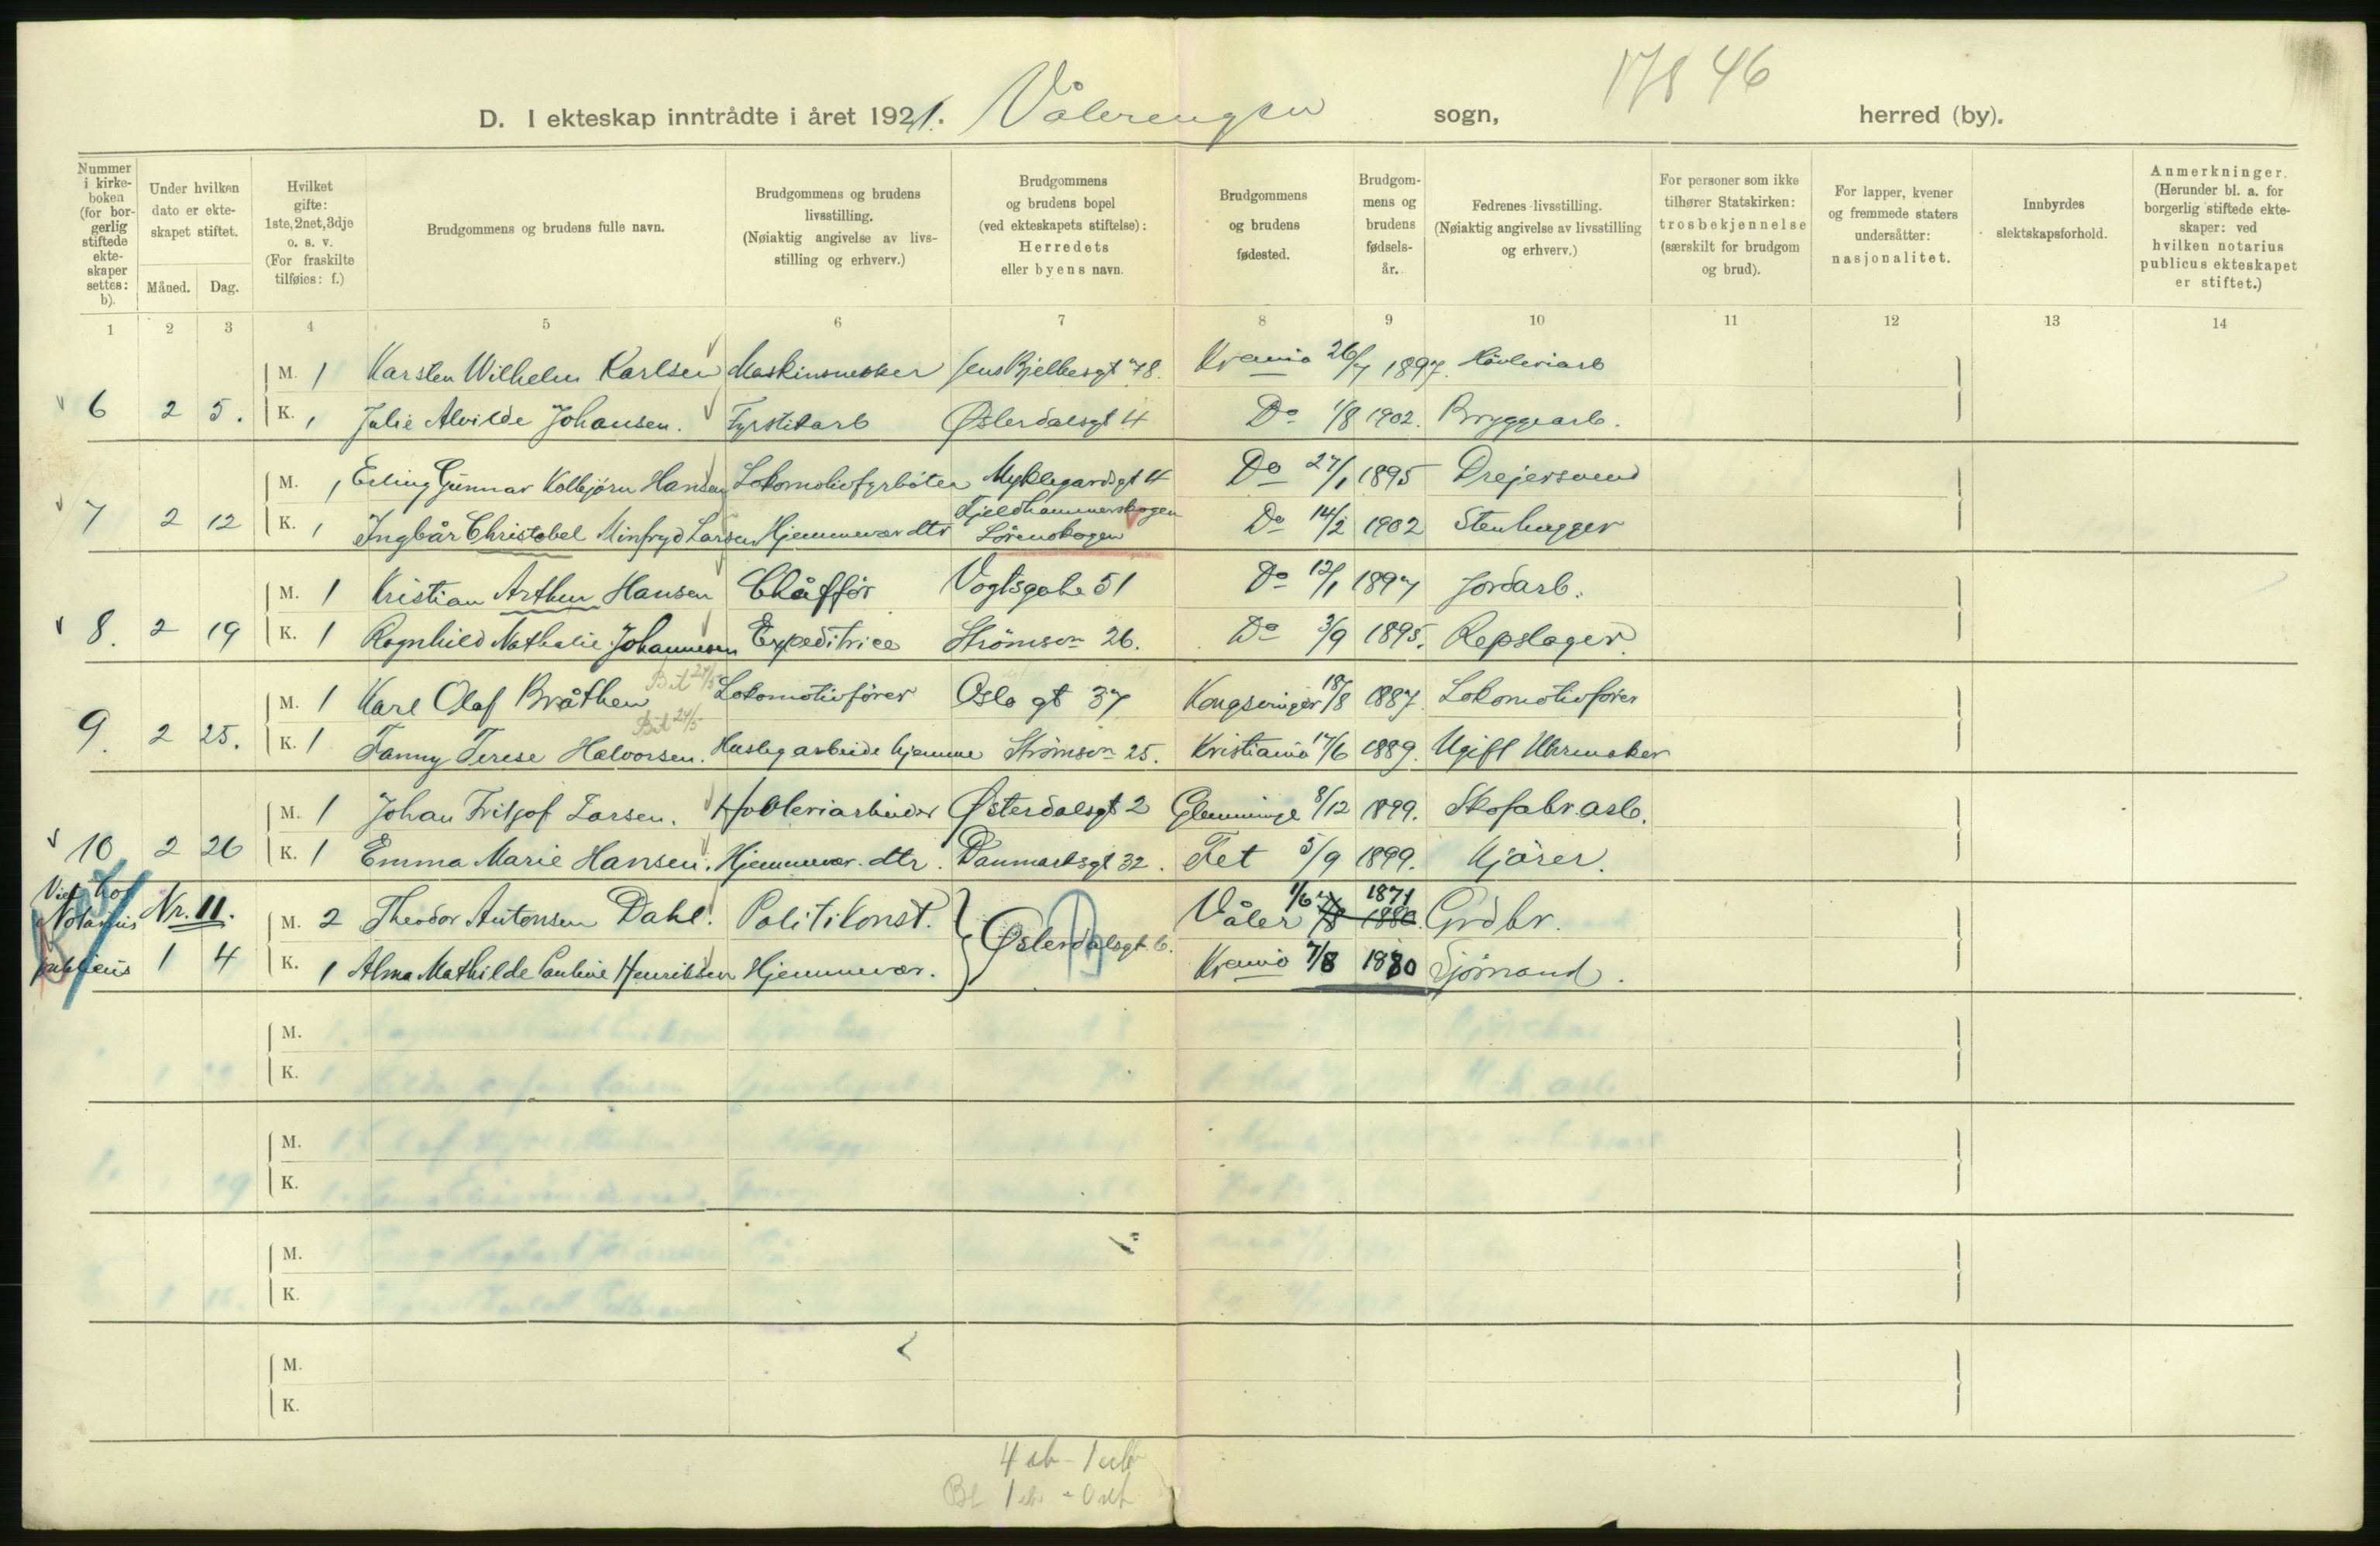 17846
D. I ekteskap inntrådte i året 1921. Vålerengen sogn, herred (by).
Nummer i kirkeboken (for borgerlig stiftede ekteskaper settes: b).
Under hvilken dato er ekteskapet stiftet.
Måned. Dag.
Hvilket gifte: 1ste, 2net, 3dje o. s. v. (For fraskilte tilføies: f.)
Brudgommens og brudens fulle navn.
Brudgommens og brudens livsstilling. (Nøiaktig angivelse av livsstilling og erhverv.)
Brudgommens og brudens bopel (ved ekteskapets stiftelse): Herredets eller byens navn.
Brudgommens og brudens fødested.
Brudgommens og brudens fødselsår.
Fedrenes livsstilling. (Nøiaktig angivelse av livsstilling og erhverv.)
For personer som ikke tilhører Statskirken: trosbekjennelse (særskilt for brudgom og brud).
For lapper, kvener og fremmede staters undersåtter: nasjonalitet.
Innbyrdes slektskapsforhold.
Anmerkninger. (Herunder bl. a. for borgerlig stiftede ekteskaper: ved hvilken notarius publicus ekteskapet er stiftet.)
1 2 3 4 5 6 7 8 9 10 11 12 13 14
M. 1 Karsten Wilhelm Karlsen Maskinsnekker Jens Bjelkesgt 78. Krania 26/7 1897. Høvleriarb
6 2 5. K. 1 Julie Alvilde Johansen. Fyrstikarb Østerdalsgt 4 Do 1/8 1902. Bryggearb.
M. 1 Erling Gunnar Kolbjørn Hansen Lokomotivfyrbøter Myklegardsgt 4 Do 27/1 1895 Drejersvend
7 2 12 K. 1 Ingbår Christobel Minfryd Larsen Hjemmevær dtr Fjeldhammerskogen Lörenskogen Do 14/2 1902 Stenhugger
M. 1 Kristian Arthur Hansen Chåffør Vogtsgate 51 Do 12/1 1897 Jordarb.
8. 2 19 K. 1 Ragnhild Nathalie Johannesen Expeditrice Strömsvn 26. Do 3/9 1895. Repslager.
M. 1 Karl Olaf Bråthen Lokomotivfører Oslo gt 37 Kongsvinger 18/8 1887. Lokomotivfører
9. 2 25. K. 1 Fanny Terese Halvorsen. Huslig arbeide hjemme Strömsvn 25. Kristiania 17/6 1889. Ugift Uhrmaker
M. 1 Johan Fritjof Larsen. Høvleriarbeider Østerdalsgt 2 Glemminge 8/12 1899. Skofabr.arb.
10 2 26 K. 1 Emma Marie Hansen. Hjemmevær. dtr. Danmarksgt 32. Fet 5/9 1899. Kjører.
Viet hos Notarius publicus Nr. 11. M. 2 Theodor Antonsen Dahl. Politikonst. Østerdalsgt 6. Våler 1/6 1871 1880. Grdbr.
1 4 K. 1 Alma Mathilde Pauline Henriksen Hjemmevær. Krania 7/8 1880 Sjømand.
M.
K.
M.
K.
M.
K.
M.
K.